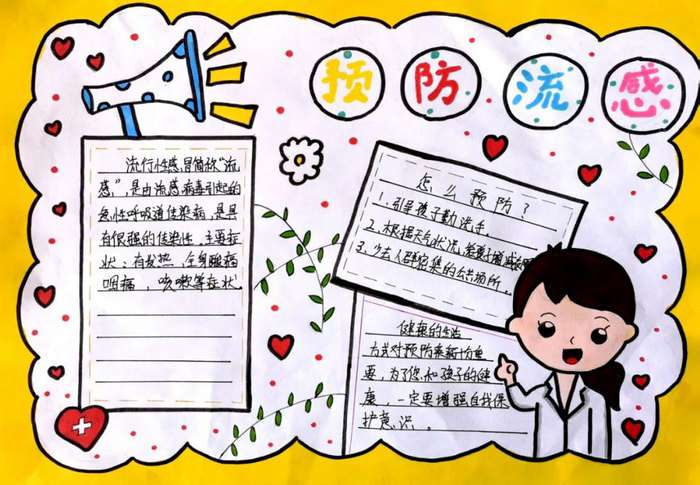 预防流感
流行性感冒简称“流
感”，是由流感病毒引起的
急性呼吸道传染病，是具
有很强的传染性，主要症
状：有发热，全身酸痛
咽痛，咳嗽等症状
怎么预防？
1.引导孩子勤洗手
2.根据天气状况，给孩子增减衣服
3.少去人群密集的公共场所。
健康的生活
方式对预防来看十分重
要，为了您和孩子的健
康，一定要增强自我保
护意识。